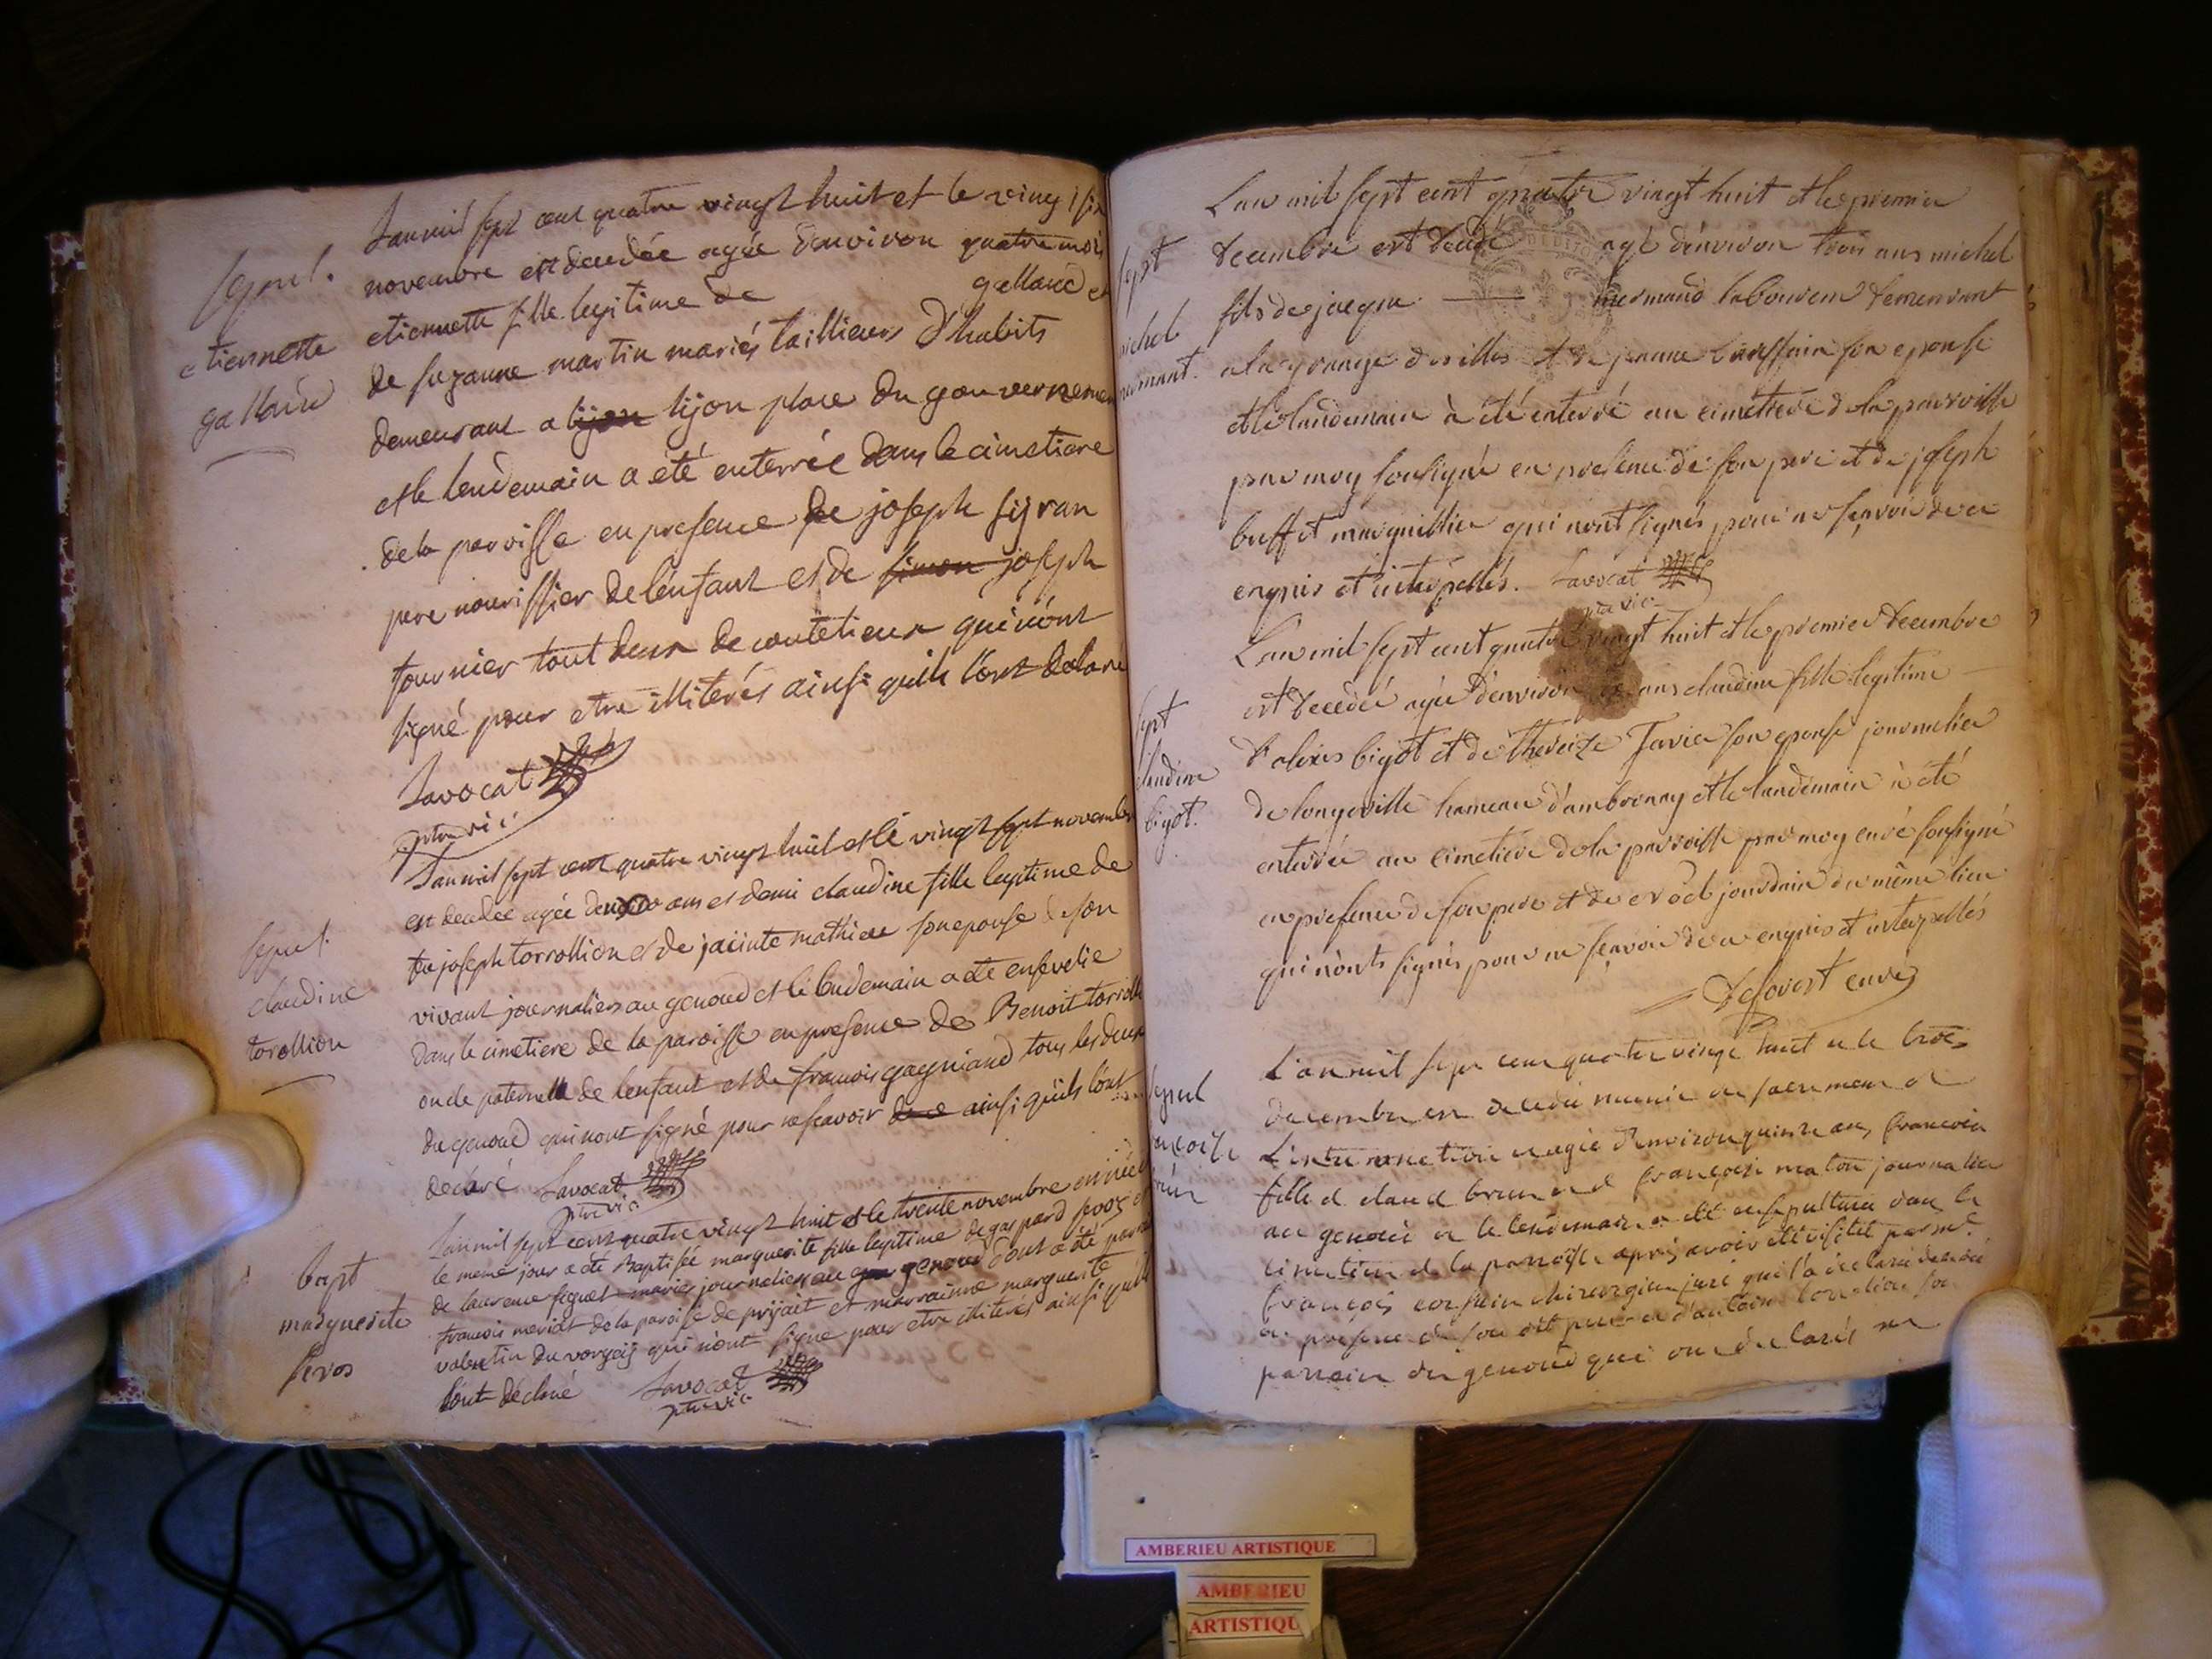 sepul.
etiennette
galland
Lan mil sept cent quatre vingt huit et le vingt six
novembre est decedée agée denviron quatre mois
etiennette fille legitime de galland et
de suzanne martin mariés taillieurs d'habits
demeurant a lijon lijon place du gouvernemen
et le lendemain a eté enterrée dans le cimetiere
de la paroisse en presence de joseph
pere nourissier de lenfant et de simon joseph
fournier tout deux de qui n'ont
signé pour etre illiterés ainsi quils l'ont declaré
Lavocat
ptre vic.
sepul.
claudine
torollion
Lan mil sept cent quatre vingt huit et le vingt sept novembre
est decedée agée ans et demi claudine fille legitime de
feu joseph torrollion et de jacinte mathieu son epouse de son
vivant journaliers au genoud et le lendemain a eté ensevelie
dans le cimetiere de la paroisse en presence de Benoit
oncle paternelle de lenfant et de francois gagniard tous les deux
du genoud qui n'ont signé pour ne scavoir de ce ainsi qu'ils l'ont
declaré Lavocat
ptre vic.
bapt
marguerite
seros
Lan mil sept cent quatre vingt huit et le trente novembre
le meme jour a eté Baptisée marguerite fille legitime de gaspard
de laurence mariés journaliers au genoud dont a eté
francois de la paroisse de et marraine marguerite
valentin du qui n'ont signé pour etre illiterés ainsi quils
l'ont déclaré Lavocat
ptre vic.
sept
michel
Lan mil sept cent quatre vingt huit et le premier
decembre est decedé agé d'environ trois ans michel
fils de jacque laboureur demeurant
a la grange et de jeanne son epouse
et le landemain à été enterré au cimetiere de la parroisse
par moy soussigné en presence de son pere et de joseph
buffet marguillier qui n'ont signés pour ne sçavoir de ce
enquis et interpellés. Lavocat
ptre vic.
sept
claudine
bigot.
Lan mil sept cent quatre vingt huit et le premier decembre
est decedée agée d'environ ans claudine fille legitime
d'alexis bigot et de thereize Javier son epouse journalier
de longeville hameau d'ambronay et le landemain à été
enterrée au cimetière de la parroisse par moy curé soussigné
en presence de son pere et de jourdain du même lieu
qui n'onts signés pour ne scavoir de ce enquis et interpellés
Deforest curé
sepul
L'an mil sept cent quatre vingt huit et le trois
decembre est decedée munie du sacrement de
L'extreme onction et agée d'environ quinze ans francoise
fille de claude brun et de françoise maton journalier
au genoud et le lendemain a été ensepulturée dans le
cimetiere de la paroisse après avoir été visitée par mr
françois chirurgien juré qui l'a declaré decedée
en presence de son dit pere et d'antoine
parrain du genoud qui ont declarés ne
AMBERIEU ARTISTIQUE
AMBERIEU
ARTISTIQU